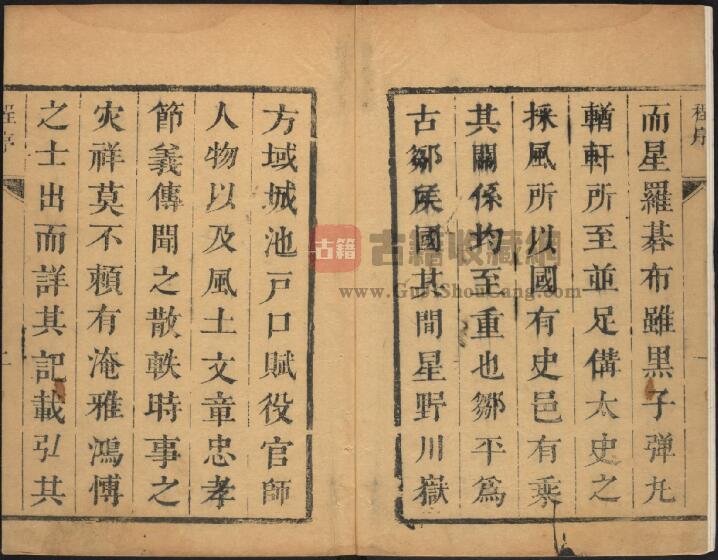 程序
而星羅碁布雖黒子弹丸
輶軒所至並足備太史之
採風所以國有史邑有乘
其關係均至重也鄒平爲
古鄒侯國其間星野川嶽
方域城池戸口賦役官師
人物以及風土文章忠孝
節義傳聞之散軼時事之
灾祥莫不頼有淹雅鴻博
之士出而詳其記載弘其
程序
古籍 古籍收藏網
www.GuJiShouCang.com